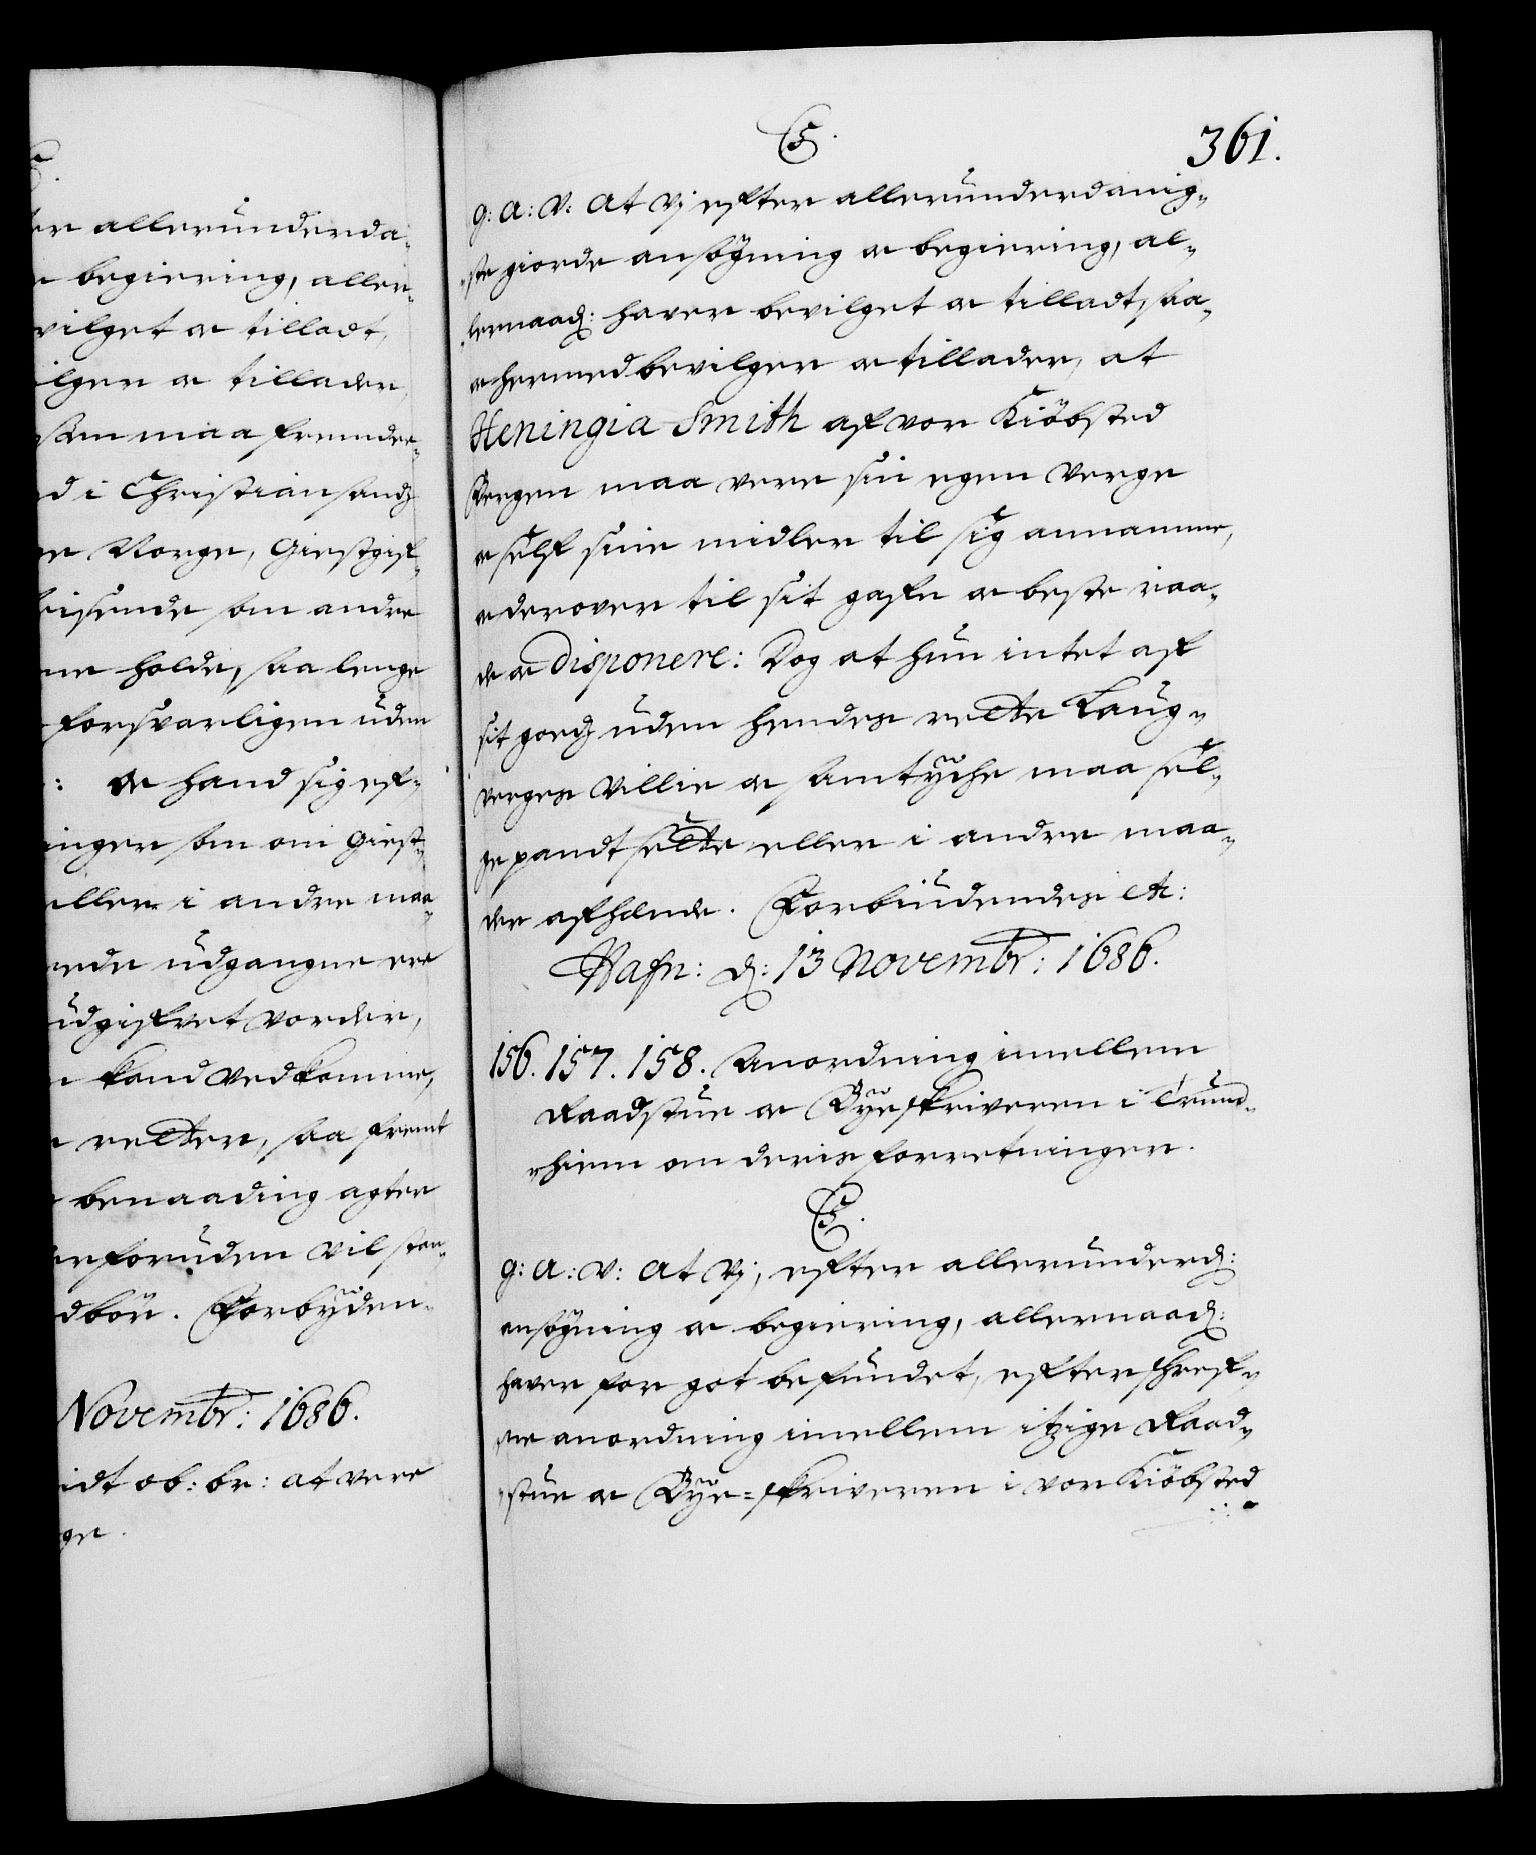 er allerunderda-
begiering, aller-
vilget oc tilladt,
ilger oc tillader,
som maa fremde-
d i Christiansand
Norge, Giestgif-
reisende som andre
holde, saa lenge
forsvarligen uden
: oc hand sig ef-
inger som om Giest-
eller i andre maa-
rede udgangne ere
udgifvet vorder,
kand vedkomme,
retter, saa fremt
benaading agter
foruden vil stan-
dbör. Forbyden-
Novembr: 1686.
idt ob: br: at vere
ge.
C5.
361.
g: a: v: at vj efter allerunderdanig-
ste giorde ansögning oc begiering, al-
lernaad: haver bevilget oc tilladt, saa-
oc hermed bevilger oc tillader, at
Heningia Smith af vor Kiöbsted
Bergen maa vere sin egen verge
oc self sine midler til sig annamme,
oc derover til sit gafn oc beste raa-
de oc disponere: Dog at hun intet af
sit godz uden hendes rette Laug-
verges villie oc samtyche maa sel-
ge pandtsette eller i andre maa-
der afhænde. Forbiudendes etc:
Hafn: d: 13 Novembr: 1686.
156. 157. 158. Anordning imellem
Raadstue oc Byeskriveren i Trund-
hiem om deris forretninger.
C5.
g: a: v: at vj, efter allerunderd:
ansögning oc begiering, allernaad:
haver for got befundet, efterschref-
ne anordning imellem itzige Raad-
stue oc Bye-skriveren i vor Kiöbsted